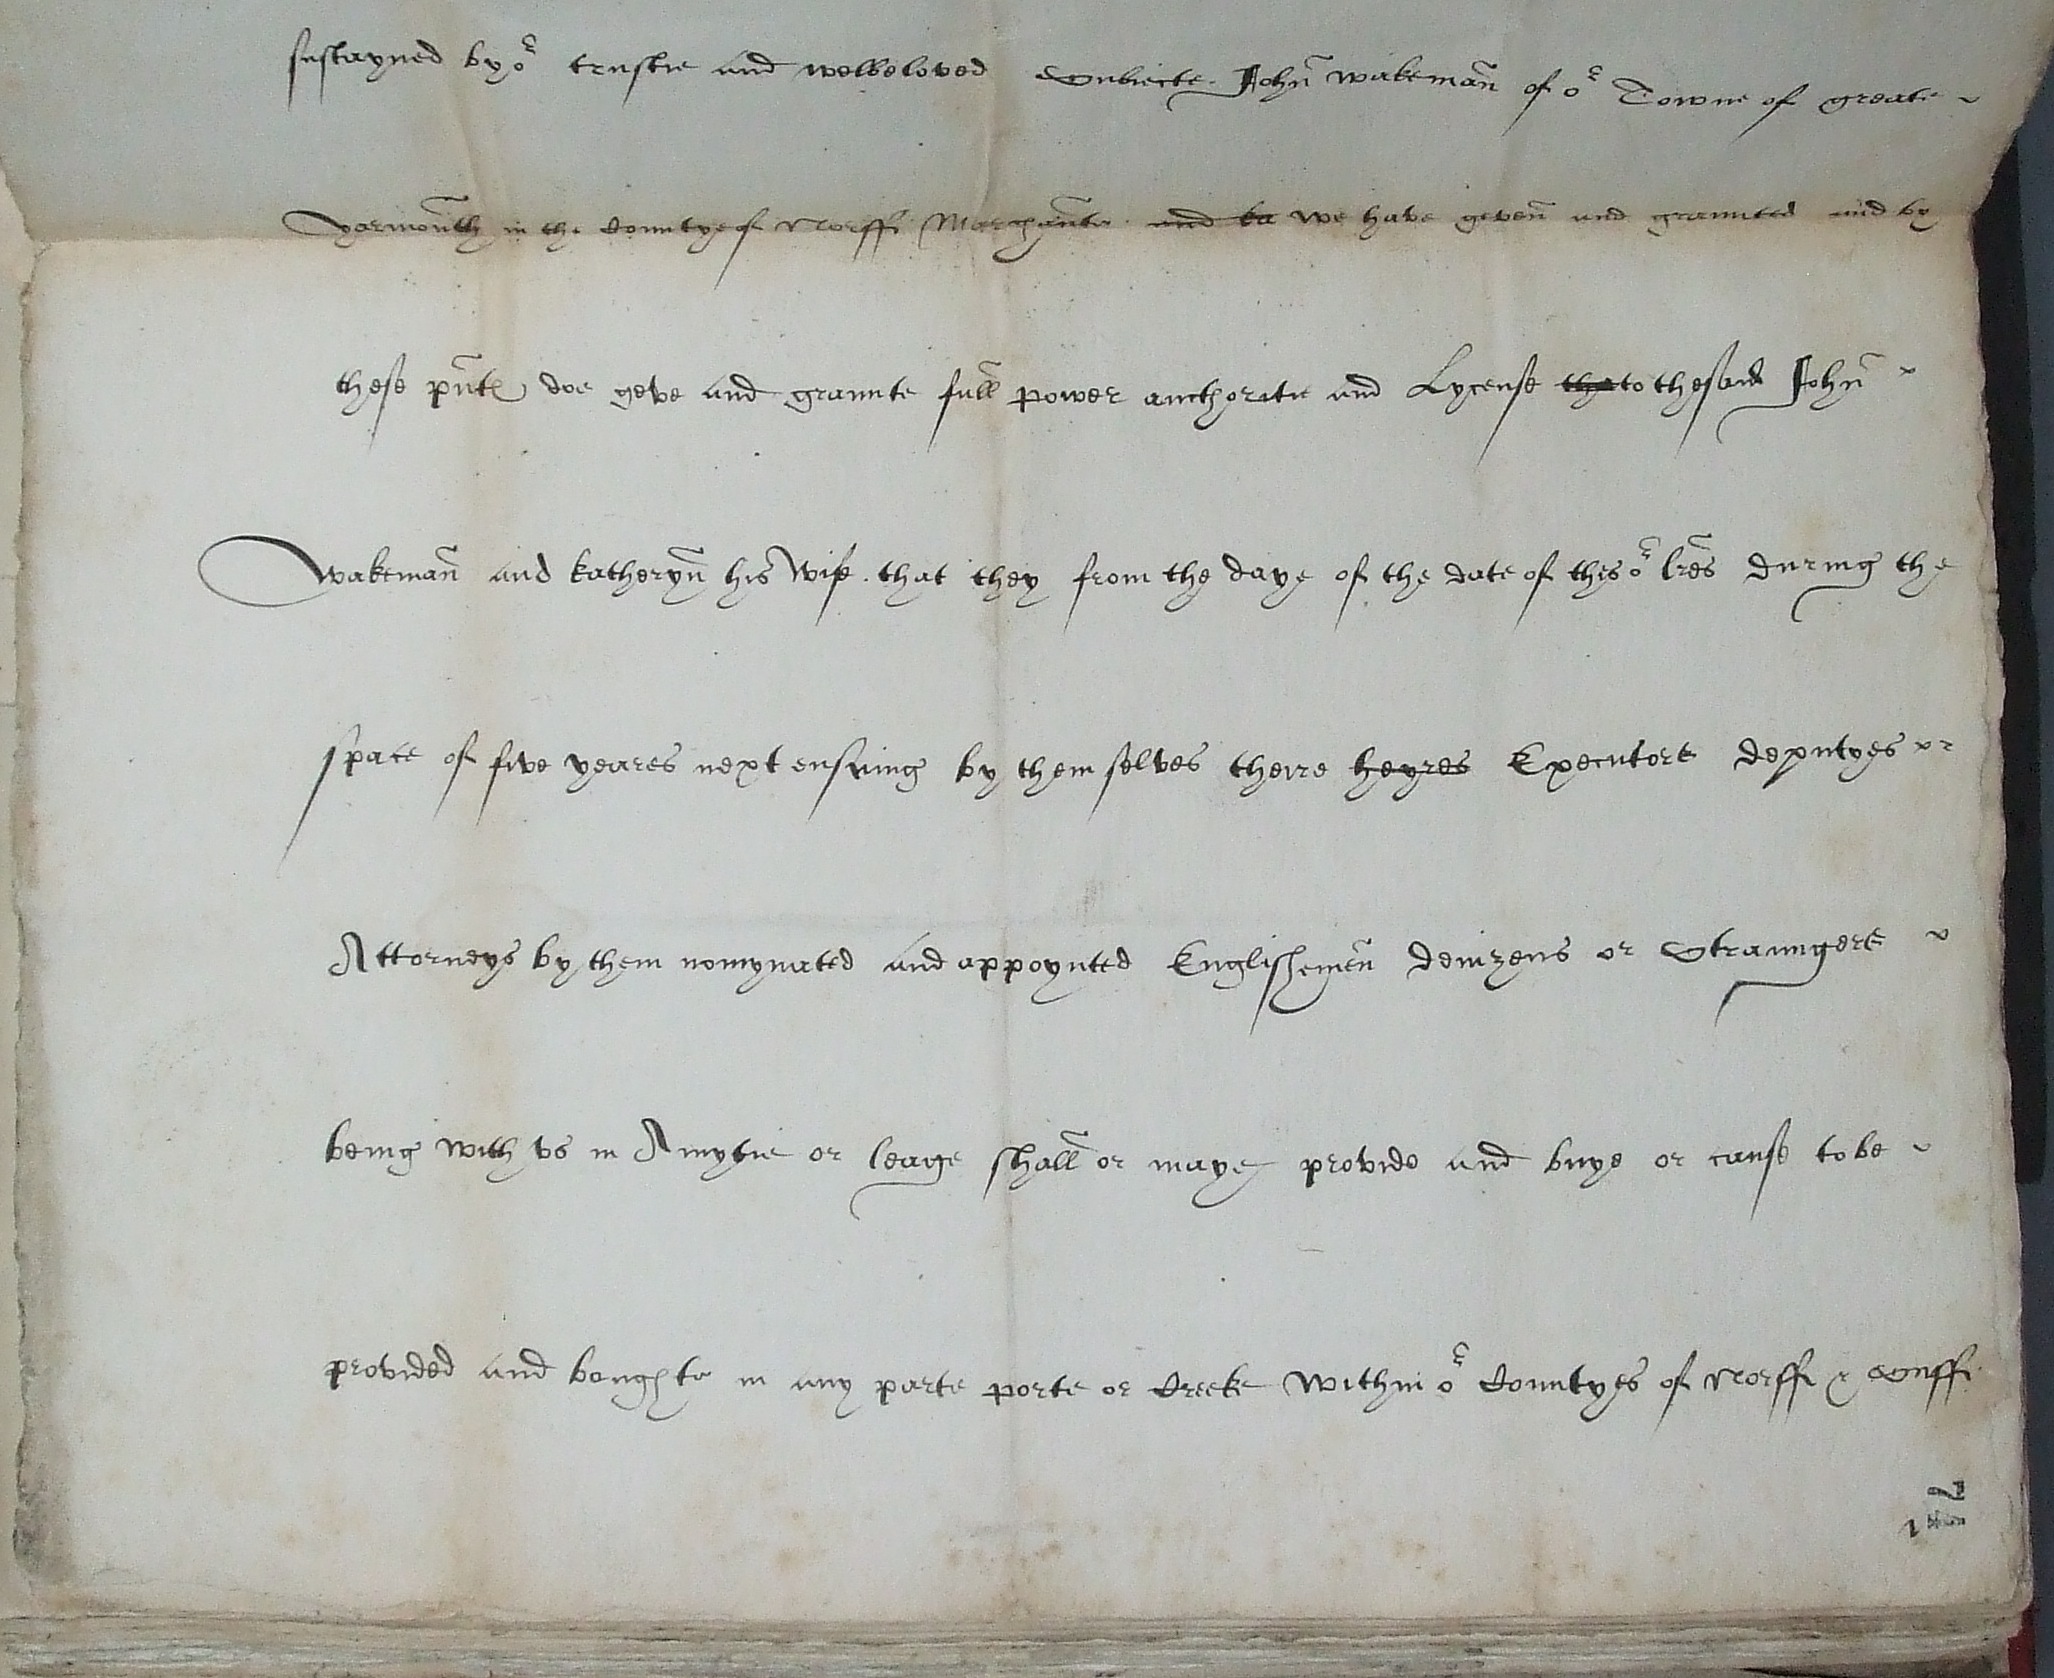 sustayned by oʳ trustie and welbeloved Subiecte John̄ Wakeman̄ of oʳ Towne of greate
Yarmouth in the Countye of Norff Marchante and ha we have geven̄ and graunted and by
these pn̄tꝭ doe geve and graunte full power aucthoritie and Lycense tha to thesaid John̄
Wakeman̄ and Katheryn̄ his Wife that they from the daye of the date of thes oʳ lr̄es during the
space of five yeares next ensuing by them selves theire heyres Executors deputyes or
Attorneys by them nomynated and appoynted Englishemen̄ denizens or Straungers
being with vs in Amytie or leage shall or maye provide and buye or cause to be
provided and boughte in any parte porte or Creeke within oʳ Countyes of Norff & Suff